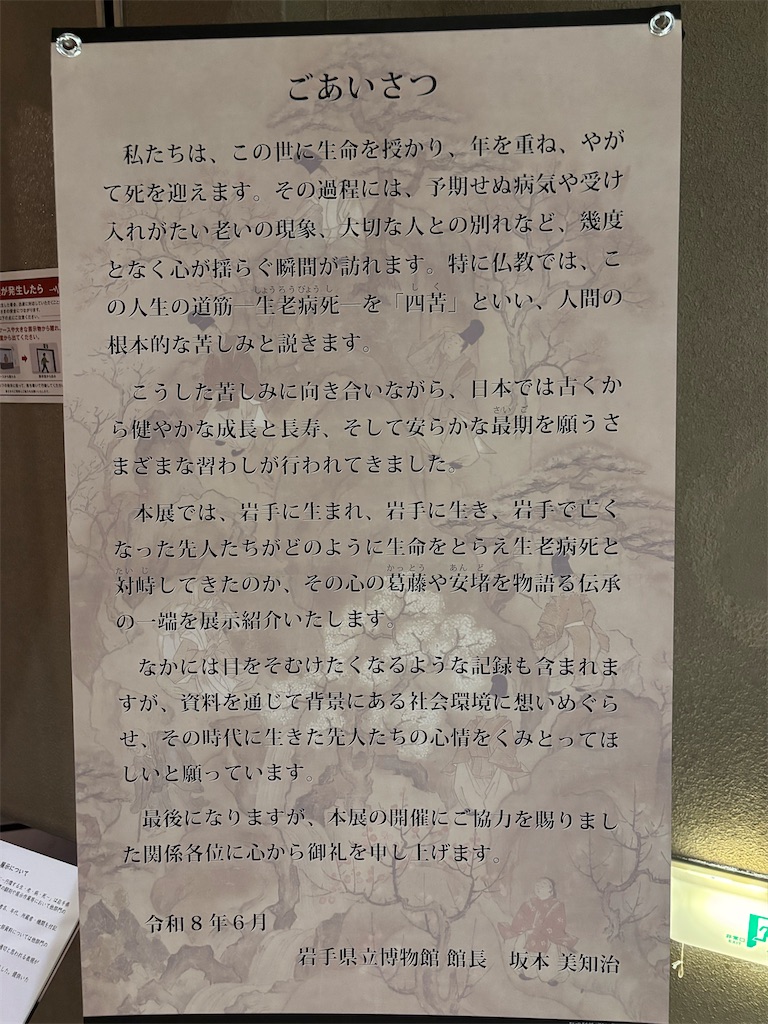 ごあいさつ
私たちは、この世に生命を授かり、年を重ね、やが
て死を迎えます。その過程には、予期せぬ病気や受け
入れがたい老いの現象、大切な人との別れなど、幾度
となく心が揺らぐ瞬間が訪れます。特に仏教では、こ
しょうろうびょうし しく
の人生の道筋―生老病死―を「四苦」といい、人間の
根本的な苦しみと説きます。
こうした苦しみに向き合いながら、日本では古くか
さいご
ら健やかな成長と長寿、そして安らかな最期を願うさ
まざまな習わしが行われてきました。
本展では、岩手に生まれ、岩手に生き、岩手で亡く
なった先人たちがどのように生命をとらえ生老病死と
たいじ かっとう あんど
対峙してきたのか、その心の葛藤や安堵を物語る伝承
の一端を展示紹介いたします。
なかには目をそむけたくなるような記録も含まれま
すが、資料を通じて背景にある社会環境に想いめぐら
せ、その時代に生きた先人たちの心情をくみとってほ
しいと願っています。
最後になりますが、本展の開催にご協力を賜りまし
た関係各位に心から御礼を申し上げます。
令和8年6月
岩手県立博物館 館長 坂本 美知治
が発生したら
展示について